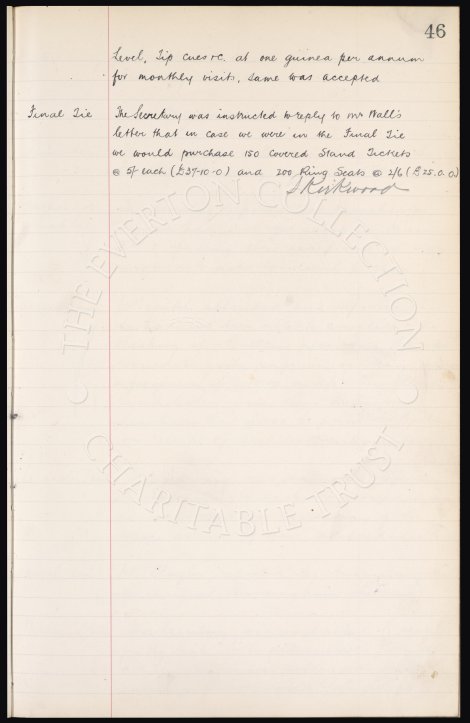 46
Level, Tip Cues &c. at one guinea per annum
for monthly visits, same was accepted
Final Tie The Secretary was instructed to reply to Mr Wall's
letter that in case we were in the Final Tie
we would purchase 150 Covered Stand Tickets
@ 5/- each (£37-10-0) and 200 Ring Seats @ 2/6 (£25.0.0)
Kirkwood
THE EVERTON COLLECTION
CHARITABLE TRUST